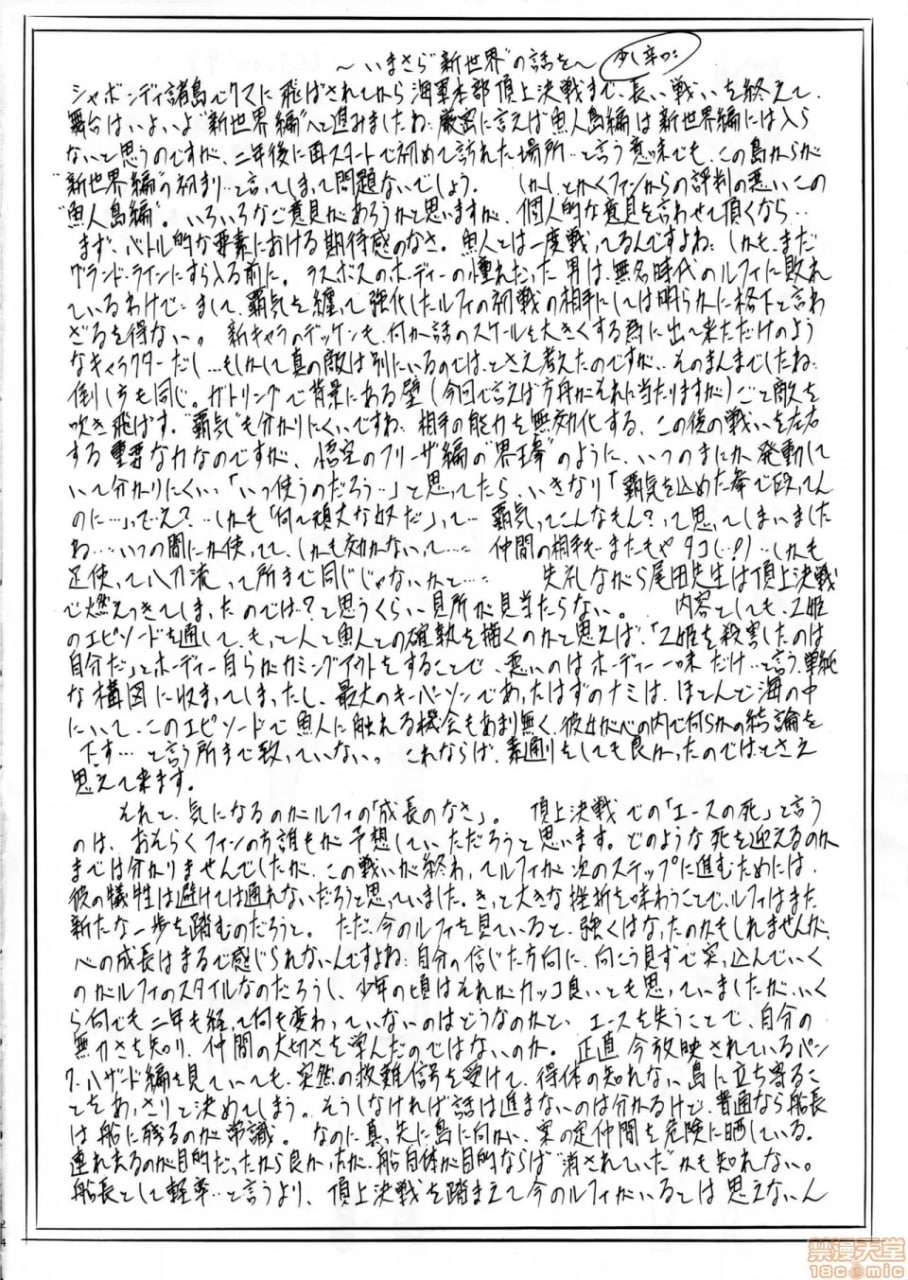 ～いまさら"新世界"の話を～ 少し辛口
シャボンディ諸島でクマに飛ばされてから海軍本部頂上決戦まで、長い戦いを終えて、
舞台はいよいよ"新世界編"へと進みましたね。厳密に言えば魚人島編は新世界編には入ら
ないと思うのですが、二年後に再スタートで初めて訪れた場所…と言う意味でも、この島からが
"新世界編"の初まり…と言ってしまって問題ないでしょう。 しかし、とかくファンからの評判の悪いこの
"魚人島編"。いろいろなご意見があろうかと思いますが、個人的な意見を言わせて頂くなら…
まず、バトル的な要素における期待感のなさ。魚人とは一度戦ってるんですよね。しかも、まだ
グランド・ラインにすら入る前に。ラスボスのホーディーの憧れだった男は、無名時代のルフィに敗れ
ているわけで…まして、覇気を纏って強化したルフィの初戦の相手にしては明らかに格下と言わ
ざるを得ない。 新キャラのデッケンも、何か話のスケールを大きくする為に出て来ただけのよう
なキャラクターだし…もしかして真の敵は別にいるのでは、とさえ考えたのですが、そのまんまでしたね。
倒し方も同じ。ガトリングで背景にある壁(今回で言えば方舟がそれに当たりますが)ごと敵を
吹き飛ばす。"覇気"も分かりにくいですね。相手の能力を無効化する、この後の戦いを左右
する重要な力なのですが、悟空のフリーザ編の"界王拳"のように、いつのまにか発動して
いて分かりにくい…「いつ使うのだろう…」と思ってたら、いきなり「覇気を込めた拳で殴ってん
のに…」って、え？…しかも「何て頑丈な奴だ」って… 覇気ってこんなもん？って思ってしまいました
ね…いつの間にか使ってて、しかも効かないって…。 仲間の相手も、またもやタコ(…!?)…しかも
足使って八刀流って所まで同じじゃないかと…。 失礼ながら尾田先生は頂上決戦
で燃えつきてしまったのでは？と思うくらい見所が見当たらない。 内容としても、乙姫
のエピソードを通して、もっと人と魚人との確執を描くのかと思えば、「乙姫を殺害したのは
自分だ」とホーディー自らがカミングアウトをすることで、悪いのはホーディー一味だけ…と言う、単純
な構図に収まってしまったし、最大のキーパーソンであったはずのナミは、ほとんど海の中
にいて、このエピソードで魚人に触れる機会もあまり無く、彼女が心の内で何らかの結論を
下す…と言う所まで致っていない。 これならば、素通りをしても良かったのでは、とさえ
思えて来ます。
それと、気になるのがルフィの「成長のなさ」。 頂上決戦での「エースの死」と言う
のは、おそらくファンの方誰もが予想していただろうと思います。どのような死を迎えるのか
までは分かりませんでしたが、この戦いが終わってルフィが次のステップに進むためには、
彼の犠牲は避けては通れないだろうと思っていました。きっと大きな挫折を味わうことで、ルフィはまた
新たな一歩を踏むのだろうと。 ただ、今のルフィを見ていると、強くはなったのかもしれませんが、
心の成長はまるで感じられないんですよね。自分の信じた方向に、向こう見ずで突っ込んでいく
のがルフィのスタイルなのだろうし、少年の頃はそれがカッコ良いとも思っていましたが、いく
ら何でも二年も経って何も変わっていないのはどうなのかと、 エースを失うことで、自分の
無力さを知り、仲間の大切さを学んだのではないのか。 正直 今放映されているパン
ク・ハザード編を見ていても、突然の救難信号を受けて、得体の知れない島に立ち寄るこ
とをあっさりと決めてしまう。そうしなければ話は進まないのは分かるけど、普通なら船長
は船に残るのが常識。 なのに真っ先に島に向かい、案の定仲間を危険に晒している。
連れ去るのが目的だったから良かったが、船自体が目的ならば"消されていた"かも知れない。
船長として軽率…と言うより、頂上決戦を踏まえて今のルフィがいるとは思えないん
24
禁漫天堂
18comic